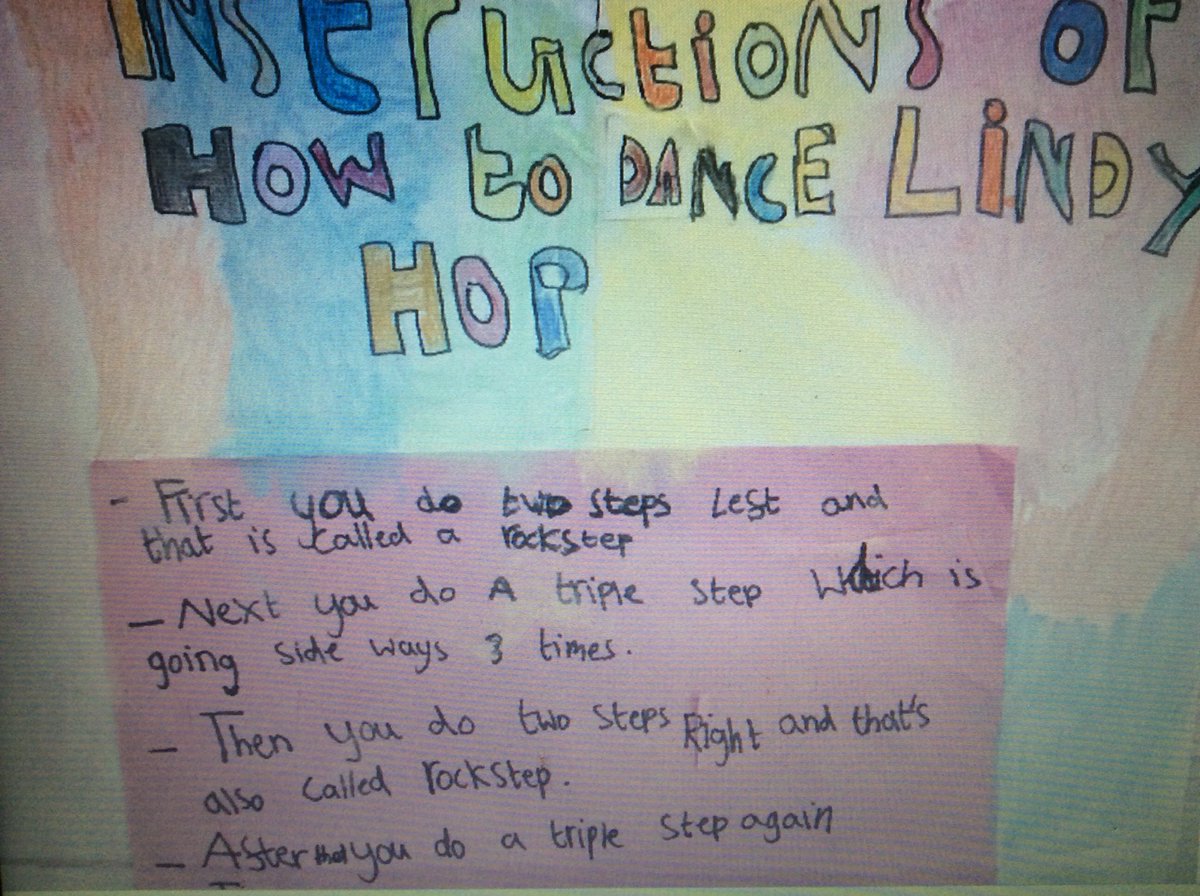 INSTrUCtiONS OF
HOW to DANCE LiNDY
HOP
- First you do two steps Left and
that is called a rockstep
- Next you do A triple step Which is
going side ways 3 times.
- Then you do two steps Right and that's
also called rockstep.
- After that you do a triple step again